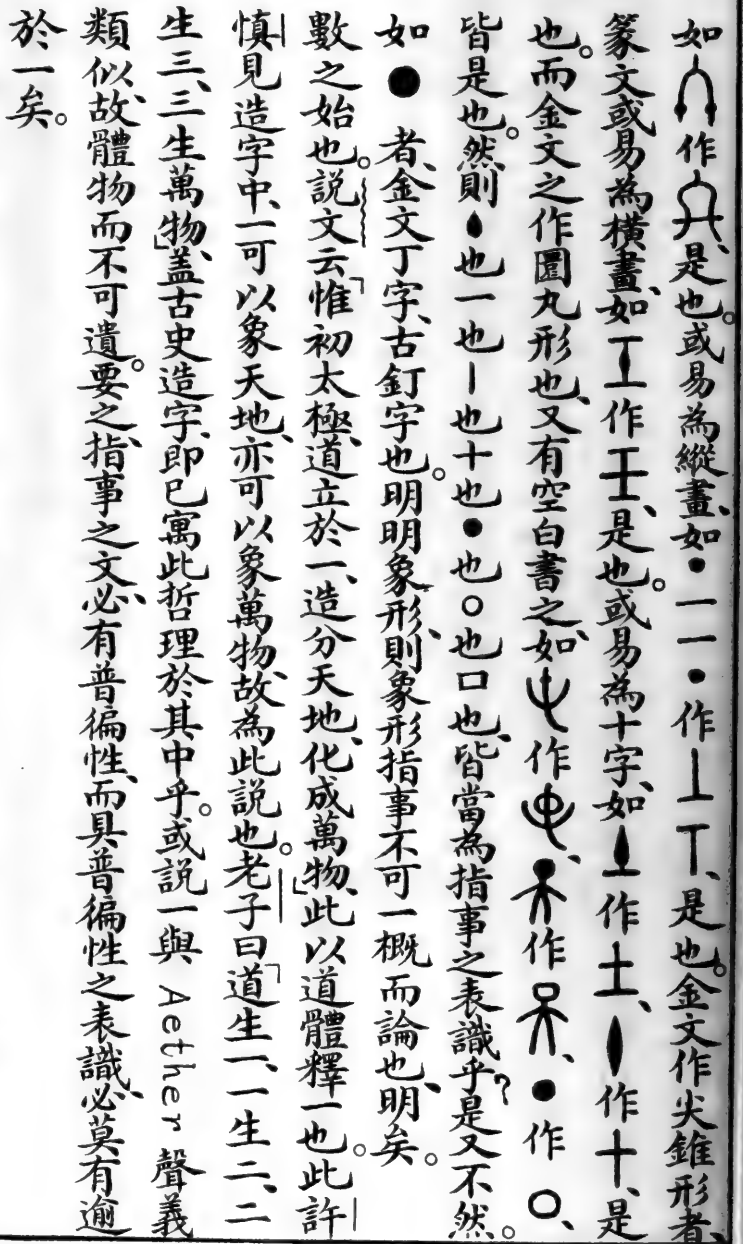 如作是也。或易為縱畫、如•一一•作丄丅、是也。金文作尖錐形者、
篆文或易為橫畫、如作王、是也。或易為十字、如作土、作十、是
也。而金文之作圜丸形也、又有空白書之、如作、作、●作○、
皆是也。然則也一也丨也十也●也○也口也、皆當為指事之表識乎？是又不然。
如●者、金文丁字、古釘字也。明明象形、則象形指事不可一概而論也、明矣。
數之始也。説文云「惟初太極、道立於一、造分天地、化成萬物、」此以道體釋一也。此許
慎見造字中、一可以象天地、亦可以象萬物、故為此説也。老子曰「道生一、一生二、二
生三、三生萬物、」蓋古史造字、即已寓此哲理於其中乎。或説一與 Aether 聲義
類似、故體物而不可遺。要之、指事之文、必有普徧性、而具普徧性之表識、必莫有逾
於一矣。